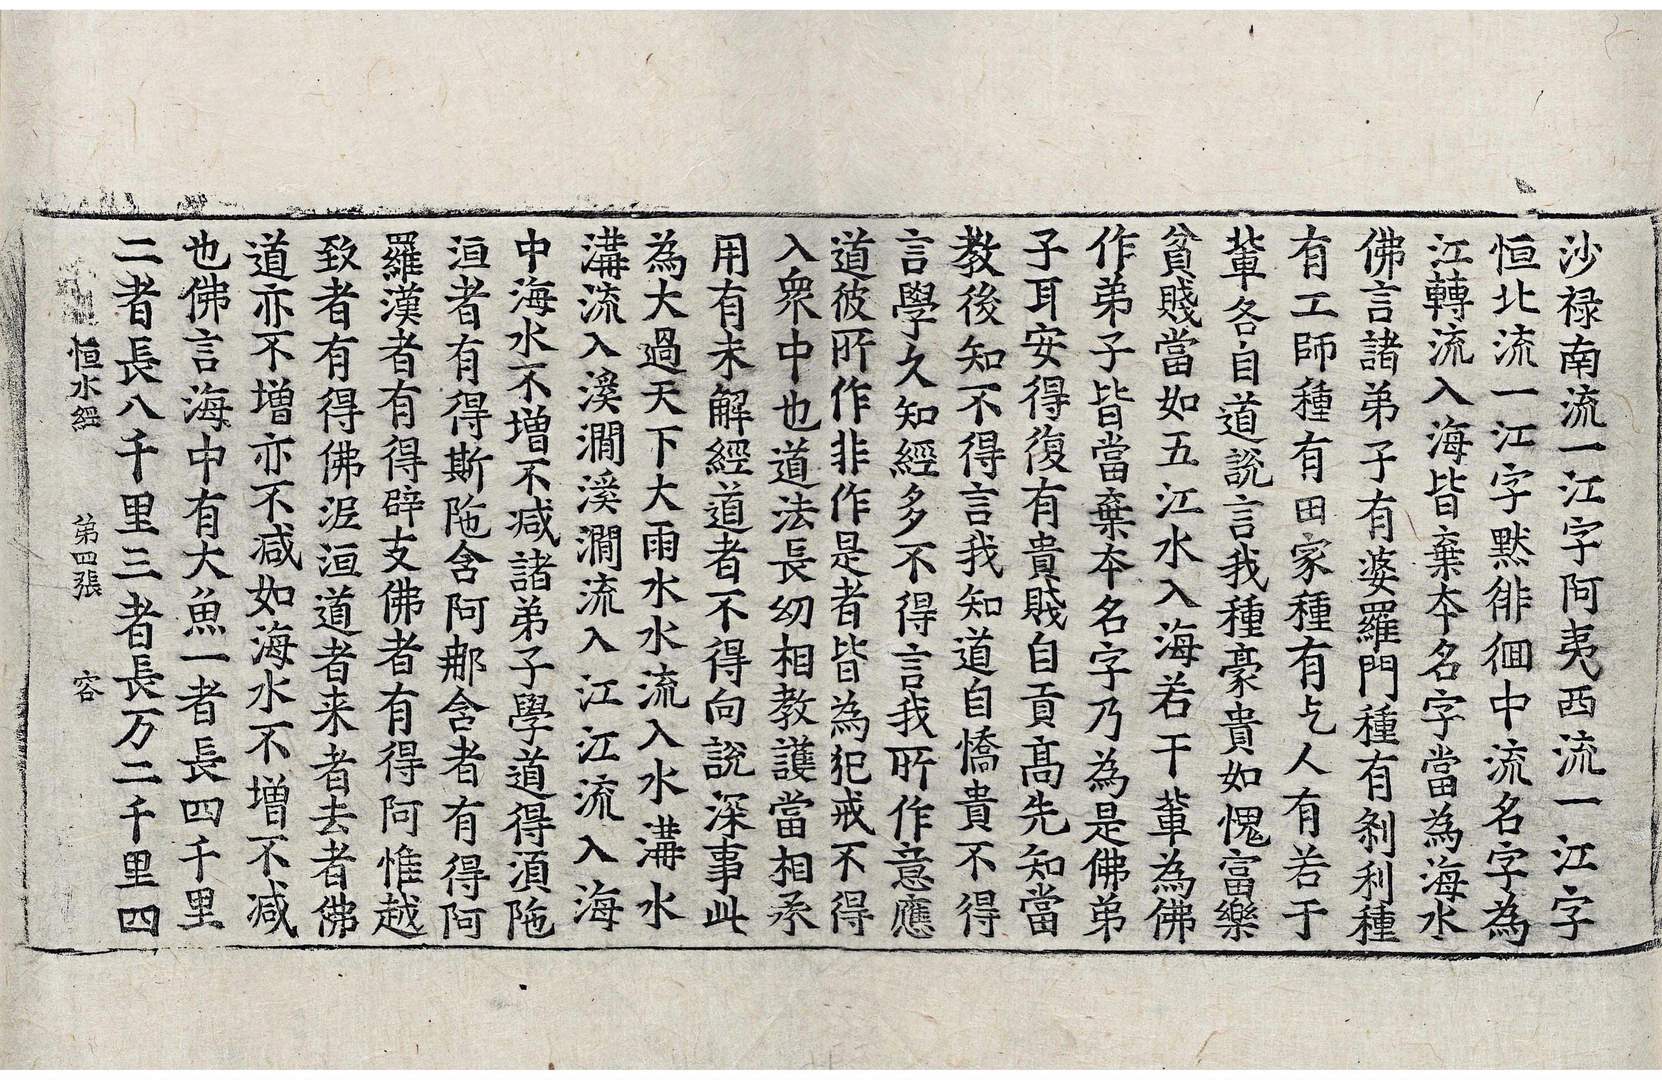 沙禄南流一江字阿夷西流一江字
恒北流一江字黙徘徊中流名字為
江轉流入海皆棄本名字當為海水
佛言諸弟子有婆羅門種有剎利種
有工師種有田家種有乞人有若干
輩各自道說言我種豪貴如愧富樂
貧賤當如五江水入海若干輩為佛
作弟子皆當棄本名字乃為是佛弟
子耳安得復有貴賎自貢高先知當
教後知不得言我知道自憍貴不得
言學久知經多不得言我所作意應
道彼所作非作是者皆為犯戒不得
入衆中也道法長幼相教護當相承
用有未解經道者不得向說深事此
為大過天下大雨水水流入水溝水
溝流入溪澗溪澗流入江江流入海
中海水不增不减諸弟子學道得湏陁
洹者有得斯陁含阿那含者有得阿
羅漢者有得辟支佛者有得阿惟越
致者有得佛泥洹道者来者去者佛
道亦不增亦不减如海水不增不减
也佛言海中有大魚一者長四千里
二者長八千里三者長万二千里四
恒水經 第四張 容